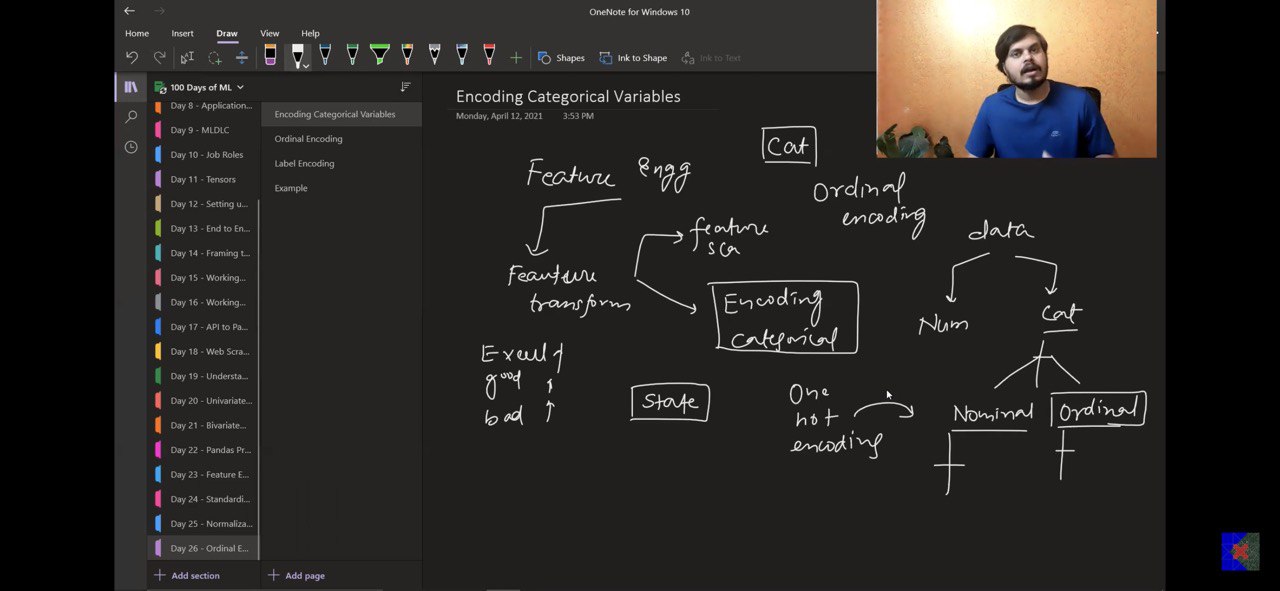 OneNote for Windows 10
Home Insert Draw View Help
Shapes Ink to Shape Ink to Text
100 Days of ML
Day 8 - Application...
Day 9 - MLDLC
Day 10 - Job Roles
Day 11 - Tensors
Day 12 - Setting u...
Day 13 - End to En...
Day 14 - Framing t...
Day 15 - Working...
Day 16 - Working...
Day 17 - API to Pa...
Day 18 - Web Scra...
Day 19 - Understa...
Day 20 - Univariate...
Day 21 - Bivariate...
Day 22 - Pandas Pr...
Day 23 - Feature E...
Day 24 - Standardi...
Day 25 - Normaliza...
Day 26 - Ordinal E...
Add section
Encoding Categorical Variables
Ordinal Encoding
Label Encoding
Example
Add page
Encoding Categorical Variables
Monday, April 12, 2021 3:53 PM
Cat
Feature Engg
Ordinal
encoding
feature
sca
data
Feauture
transform
Encoding
Categorical
Num
Cat
good
bad
State
One
hot
encoding
Nominal
Ordinal